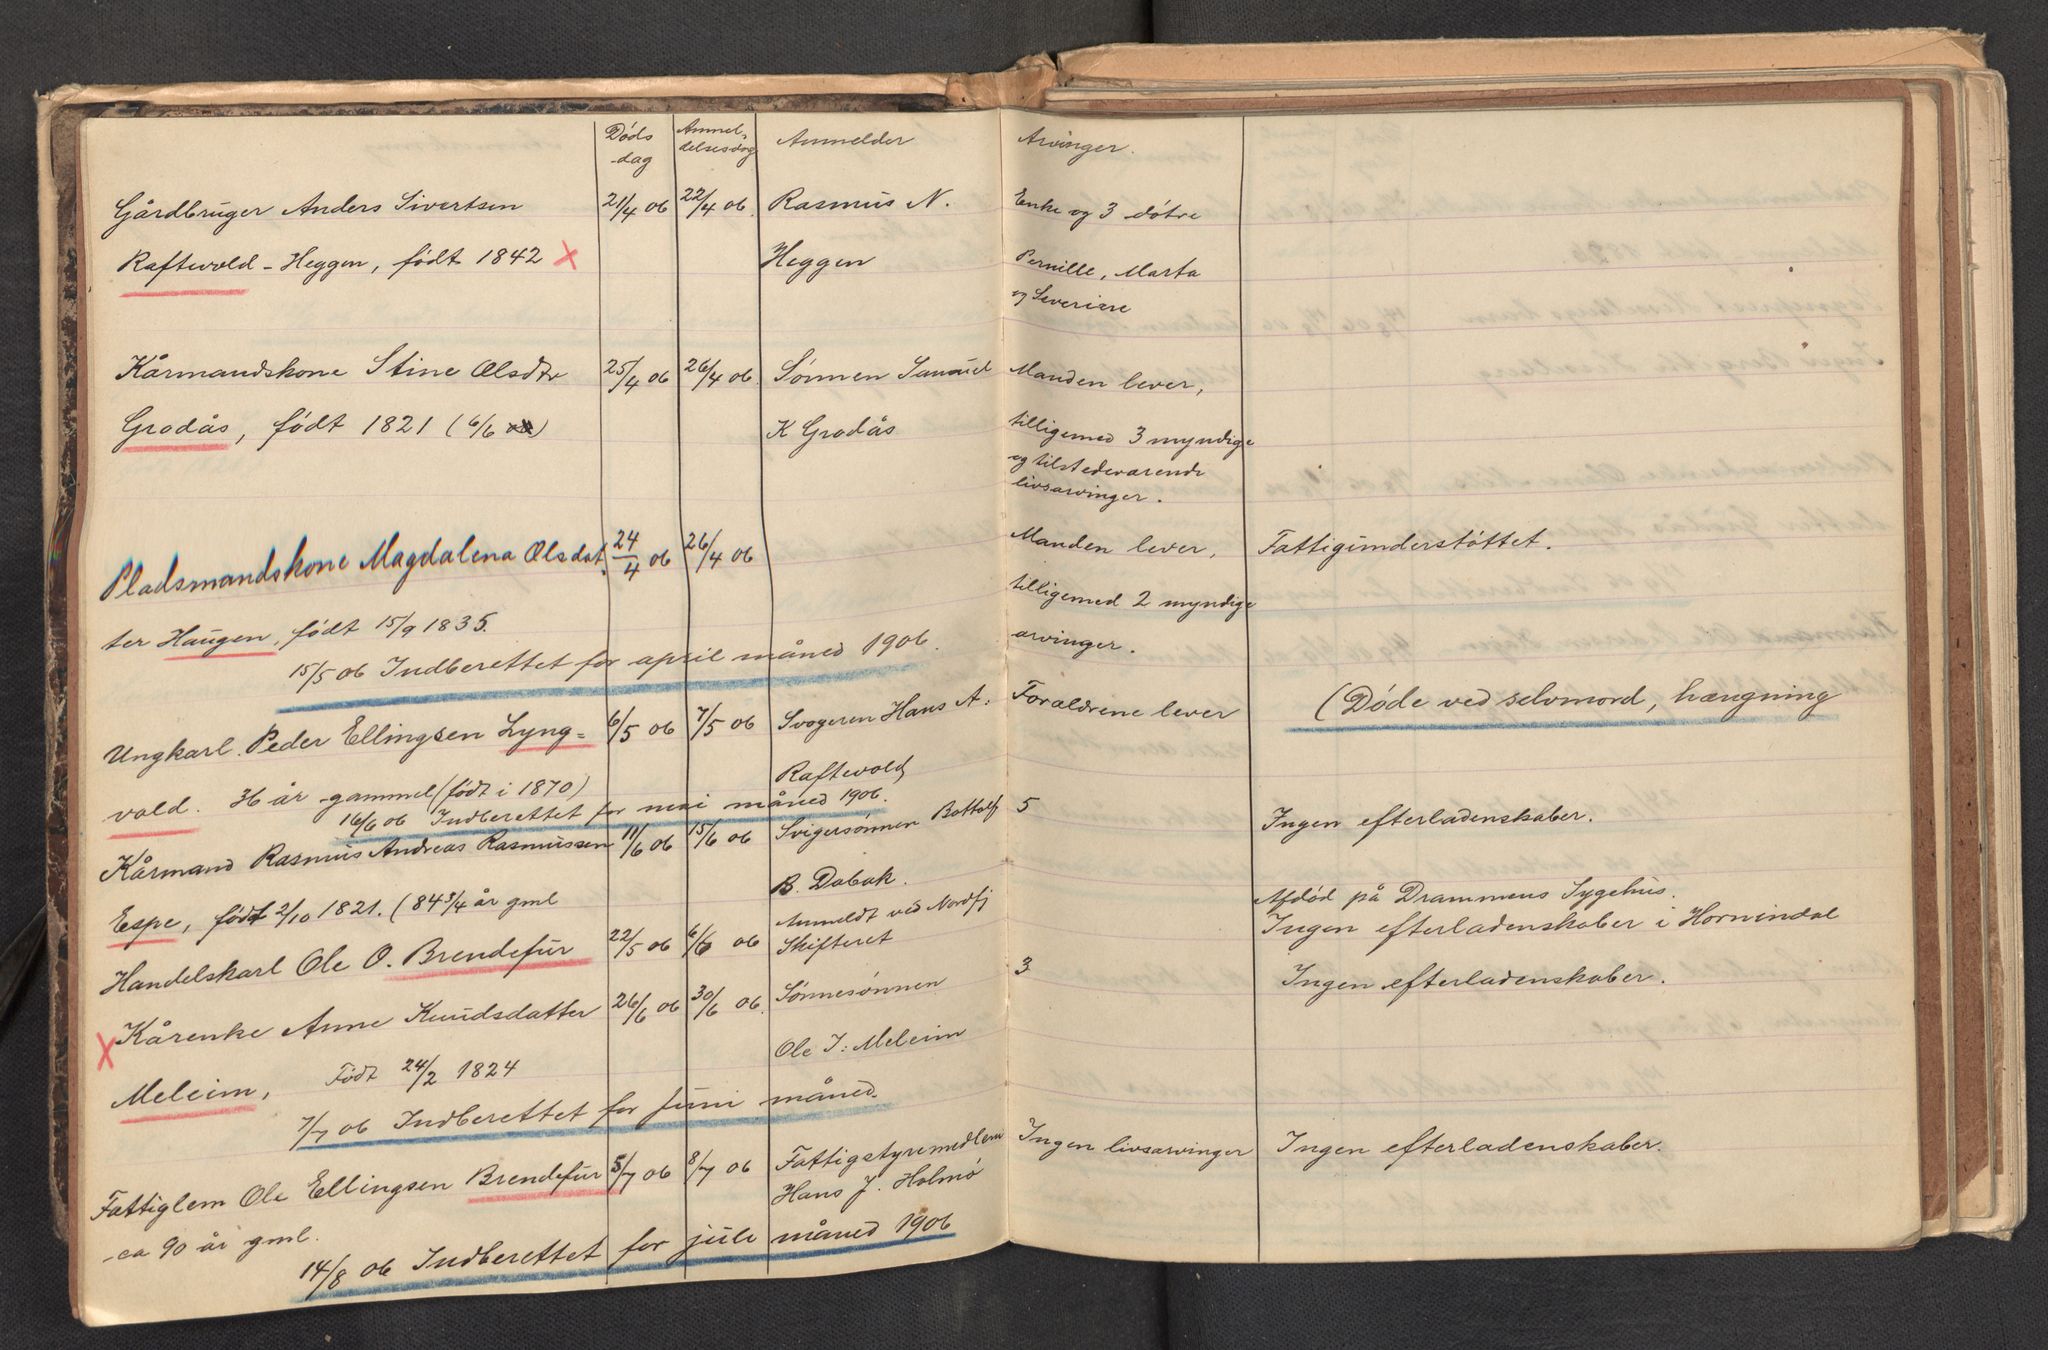 Døds dag | Anmel- delsesdag | Anmelder | Arvinger.
Gårdbruger Anders Sivertsen | 21/4 06 | 22/4 06. | Rasmus N. | Enke og 3 døtre
Raftevold - Heggen, født 1842 X | Heggen | Pernille, Marta
og Severine
Kårmandskone Stine Olsdtr | 25/4 06 | 26/4 06. | Sønnen Samuel | Manden lever,
Grodås, født 1821 (6/6 | K Grodås | tilligemed 3 myndige
og tilstedeværende
livsarvinger.
Pladsmandskone Magdalena Olsdat. | 24/4 06 | 26/4 06 | Manden lever, | Fattigunderstøttet.
ter Haugen, født 15/9 1835. | tilligemed 2 myndige
15/5 06 Indberettet for april måned 1906. | arvinger.
Ungkarl. Peder Ellingsen Lyng= | 6/5 06 | 7/5 06 | Svogeren Hans A. | Forældrene lever | (Døde ved selvmord, hængning
vold. 36 år gammel (født i 1870) | Raftevold
16/6 06 Indberettet for mai måned 1906.
Kårmand Rasmus Andreas Rasmussen | 11/6 06 | 15/6 06 | Svigersønnen Bottolf | 5 | Ingen efterladenskaber.
Espe, født 2/10 1821. (84 3/4 år gml | B. Dobak.
Handelskarl Ole O. Brendefur | 22/5 06 | 6/6 06 | Anmeldt ved Nordfj | Afdød på Drammens Sygehus.
Skifteret | Ingen efterladenskaber i Hornindal
X Kårenke Anne Knudsdatter | 26/6 06 | 30/6 06. | Sønnesønnen | 3 | Ingen efterladenskaber.
Meleim, Født 24/2 1824 | Ole I: Meleim
7/7 06 Indberettet for juni måned.
Fattiglem Ole Ellingsen Brendefur | 5/7 06 | 8/7 06 | Fattigstyremedlem | Ingen livsarvinger | Ingen efterladenskaber.
ca 90 år gml. | Hans J. Holmø
14/8 06 Indberettet for juli måned 1906